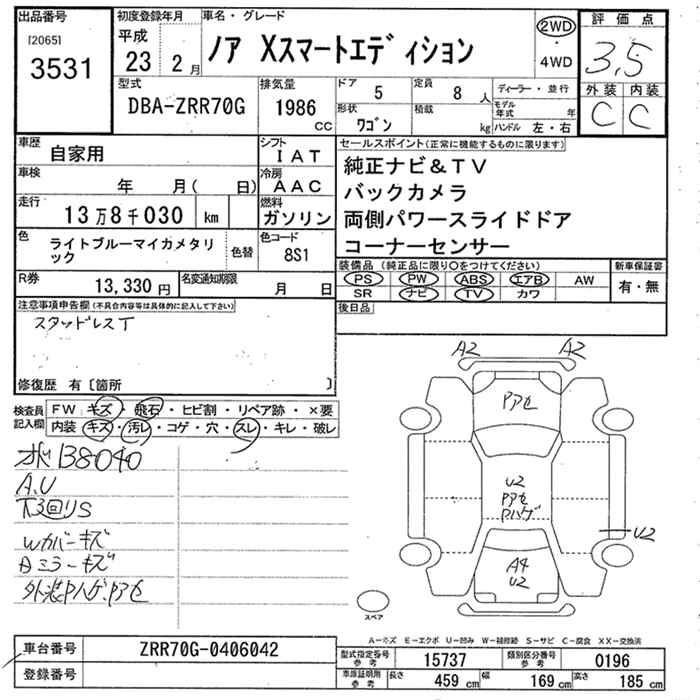 出品番号
[2065]
3531
初度登録年月
平成
23 2 月
車名・グレード
ノア Xスマートエディション
2WD
・
4WD
評価点
3,5
外装 内装
C C
型式
DBA-ZRR70G
排気量
1986
CC
ドア
5
定員
8 人
形状
ワゴン
積載
kg
ディーラー・並行
モデル年式 年
ハンドル 左・右
車歴
自家用
シフト
I A T
車検
年 月( 日)
冷房
A A C
走行
13万8千030 km
燃料
ガソリン
色
ライトブルーマイカメタリック
色替
色コード
8S1
R券
13,330 円
名変通知期限
月 日
セールスポイント(正常に機能するものに限ります)
純正ナビ&TV
バックカメラ
両側パワースライドドア
コーナーセンサー
装備品(純正品に限り○をつけてください)
PS PW ABS エアB AW
SR ナビ TV カワ
新車保証書
有・無
後日品
注意事項申告欄(不具合内容等は具体的に記入して下さい)
スタッドレスT
修復歴 有〔箇所 〕
検査員記入欄
FW キズ・飛石・ヒビ割・リペア跡・×要
内装 キズ・汚レ・コゲ・穴・スレ・キレ・破レ
138040
A.U
下3回りS
Wカバーキズ
Bミラーキズ
外装Pハゲ.Pアセ
A2 A2
Pアセ
U2
Pアセ
Pハゲ
U2
A4
U2
スペア
A-キズ E-エクボ U-凹み W-補修跡 S-サビ C-腐食 XX-交換済
車台番号
ZRR70G-0406042
登録番号
型式指定番号
参考
15737
類別区分番号
参考
0196
車庫証明用
参考
長さ
459 cm
幅
169 cm
高さ
185 cm